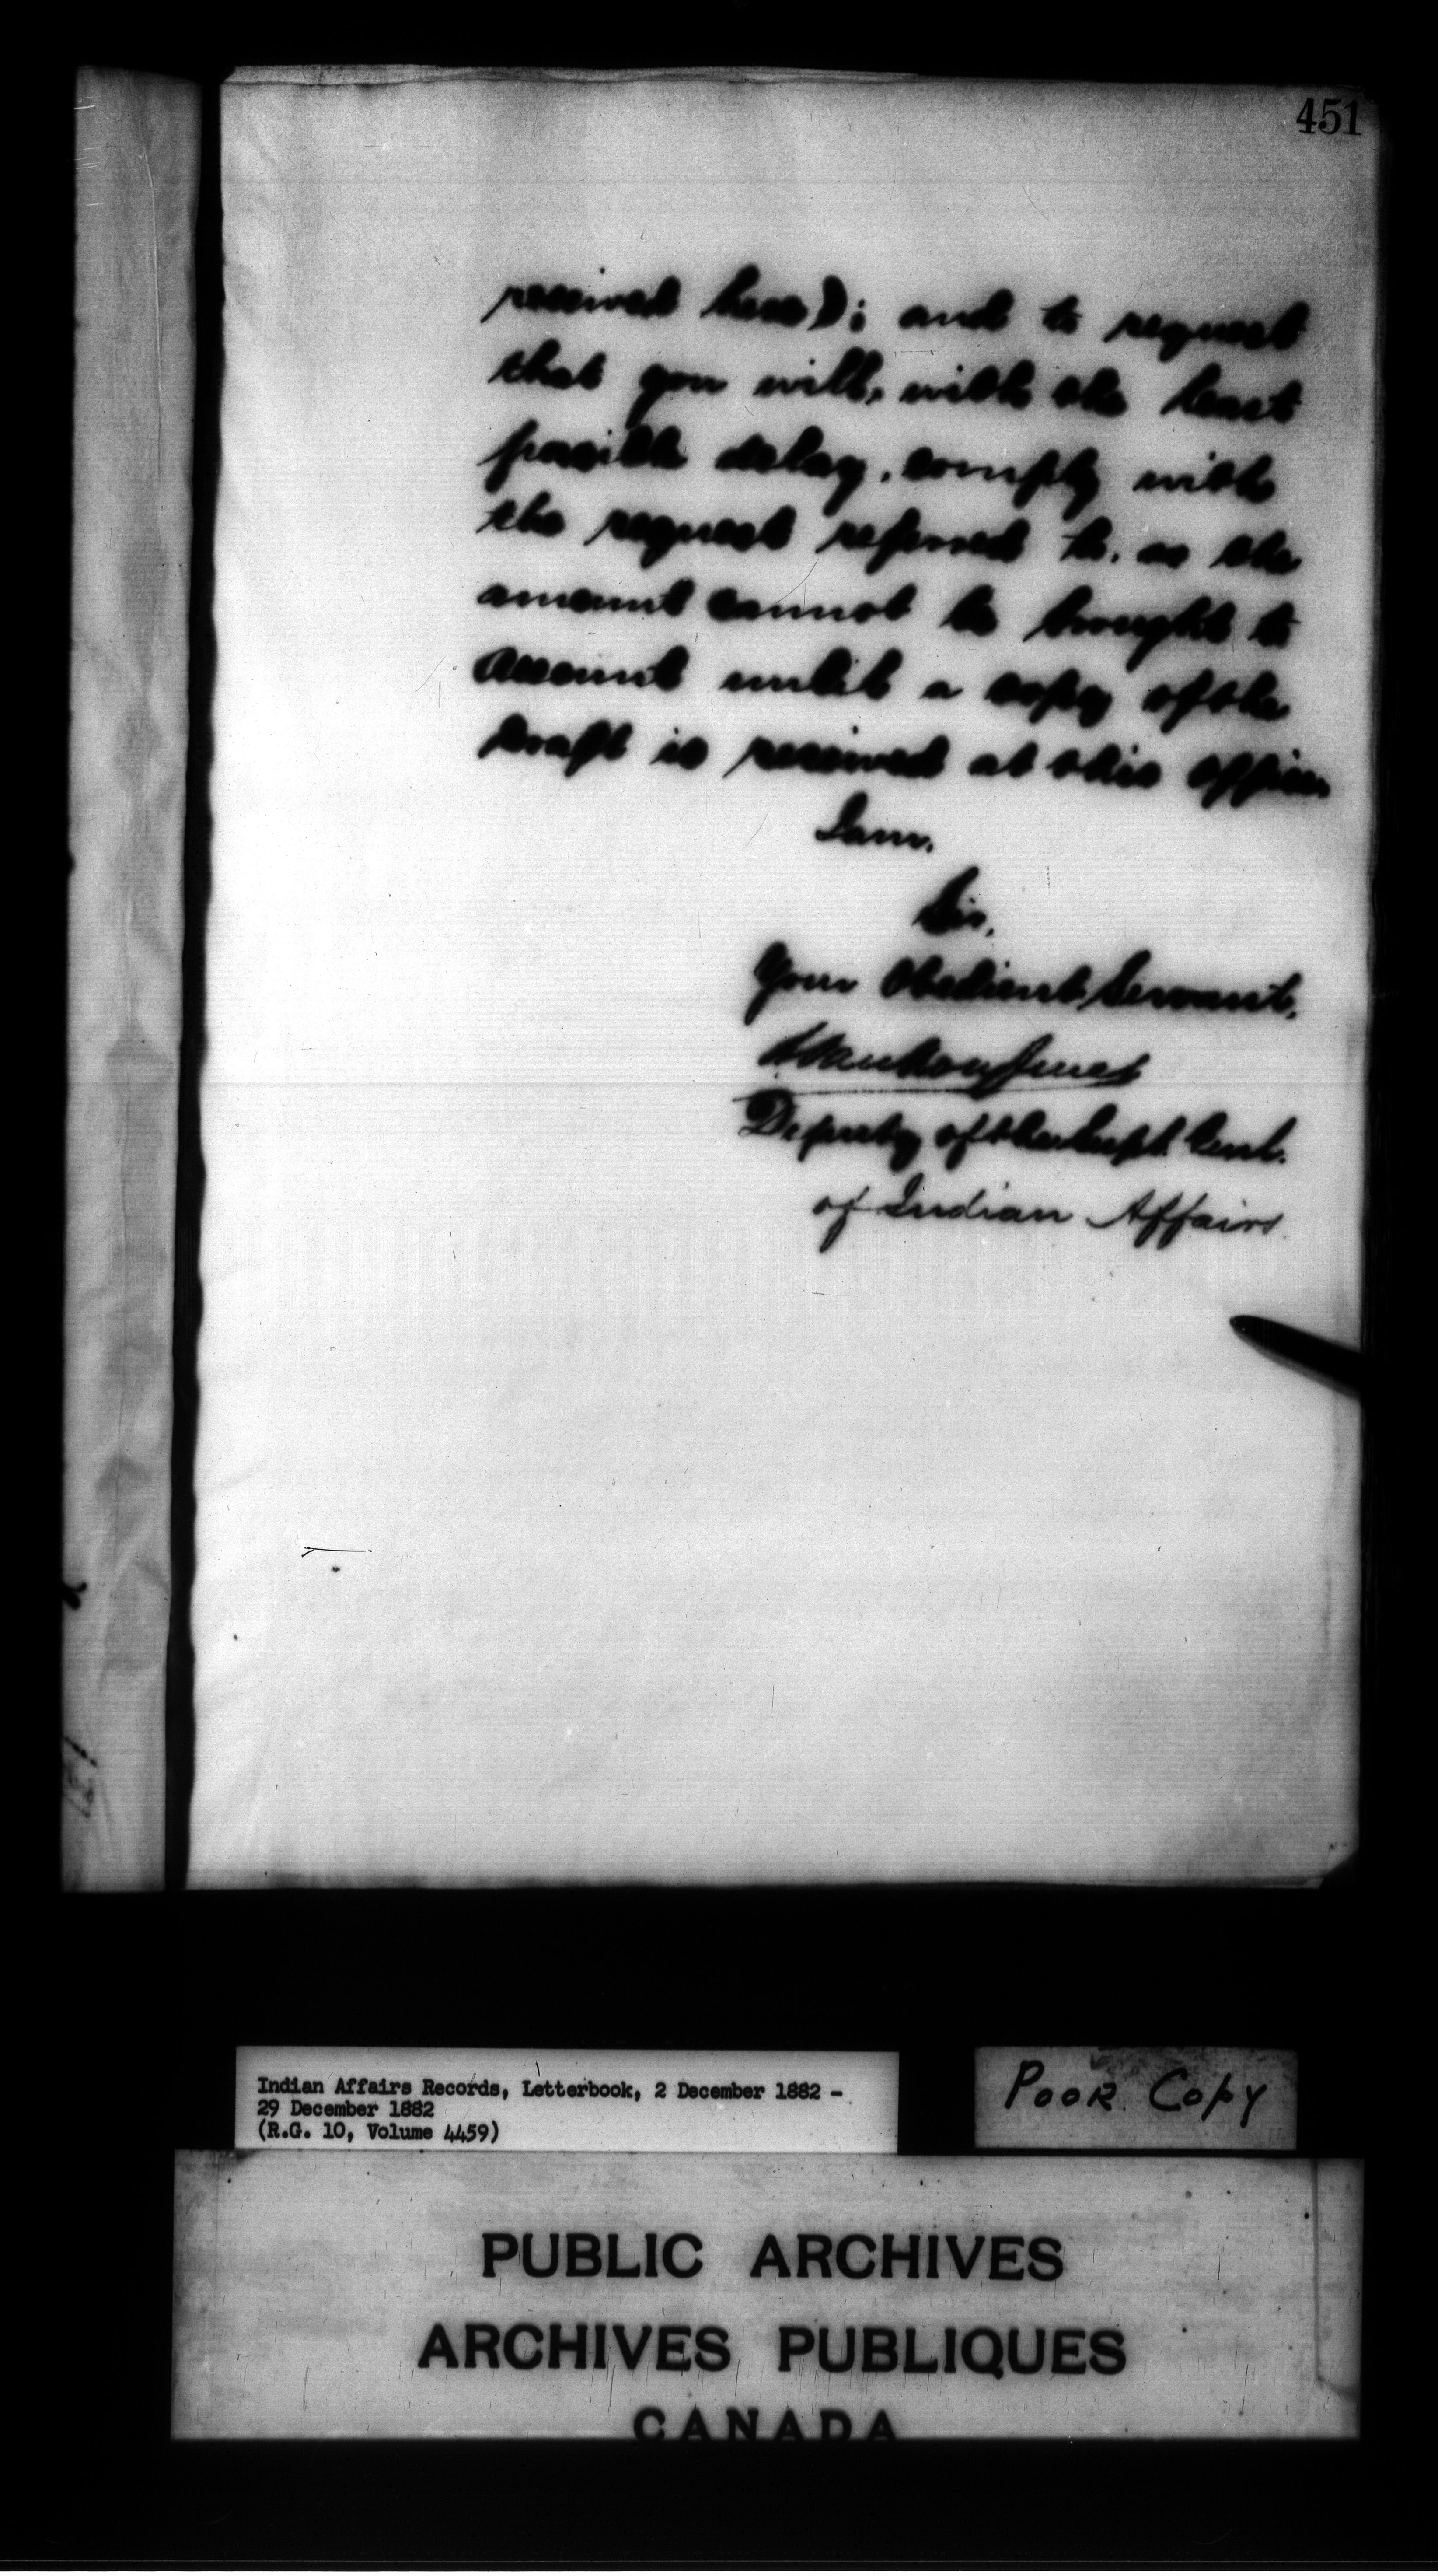 451
received here); and to request
that you will, with the least
possible delay, comply with
the request referred to, as the
amount cannot be brought to
account until a copy of the
Draft is received at this office.
I am,
Sir,
Your Obedient Servant,
Deputy of the Supt. Genl.
of Indian Affairs.
Indian Affairs Records, Letterbook, 2 December 1882 -
29 December 1882
(R.G. 10, Volume 4459)
POOR COPY
PUBLIC ARCHIVES
ARCHIVES PUBLIQUES
CANADA